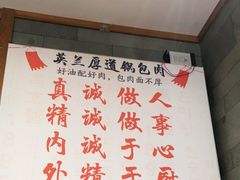 英兰厚道锅包肉
好油配好肉、包肉面不厚
真诚做人
精诚做事
内诚于心
外精于厨